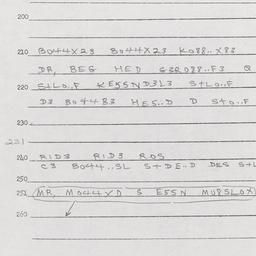 200
210 8044X23 8044X23 K088..X83
DR, BES HED G3R088..F3 Q
220 S+LO..F KE55ND3L3 S+LO..F
D3 804483 HES..D D S+O..F
230
231
240 RID3 RID3 ROS
C3 8044..SL S+DE..D DES S+L
250
252 MR, M044VD S E55N MU8SLOX
260